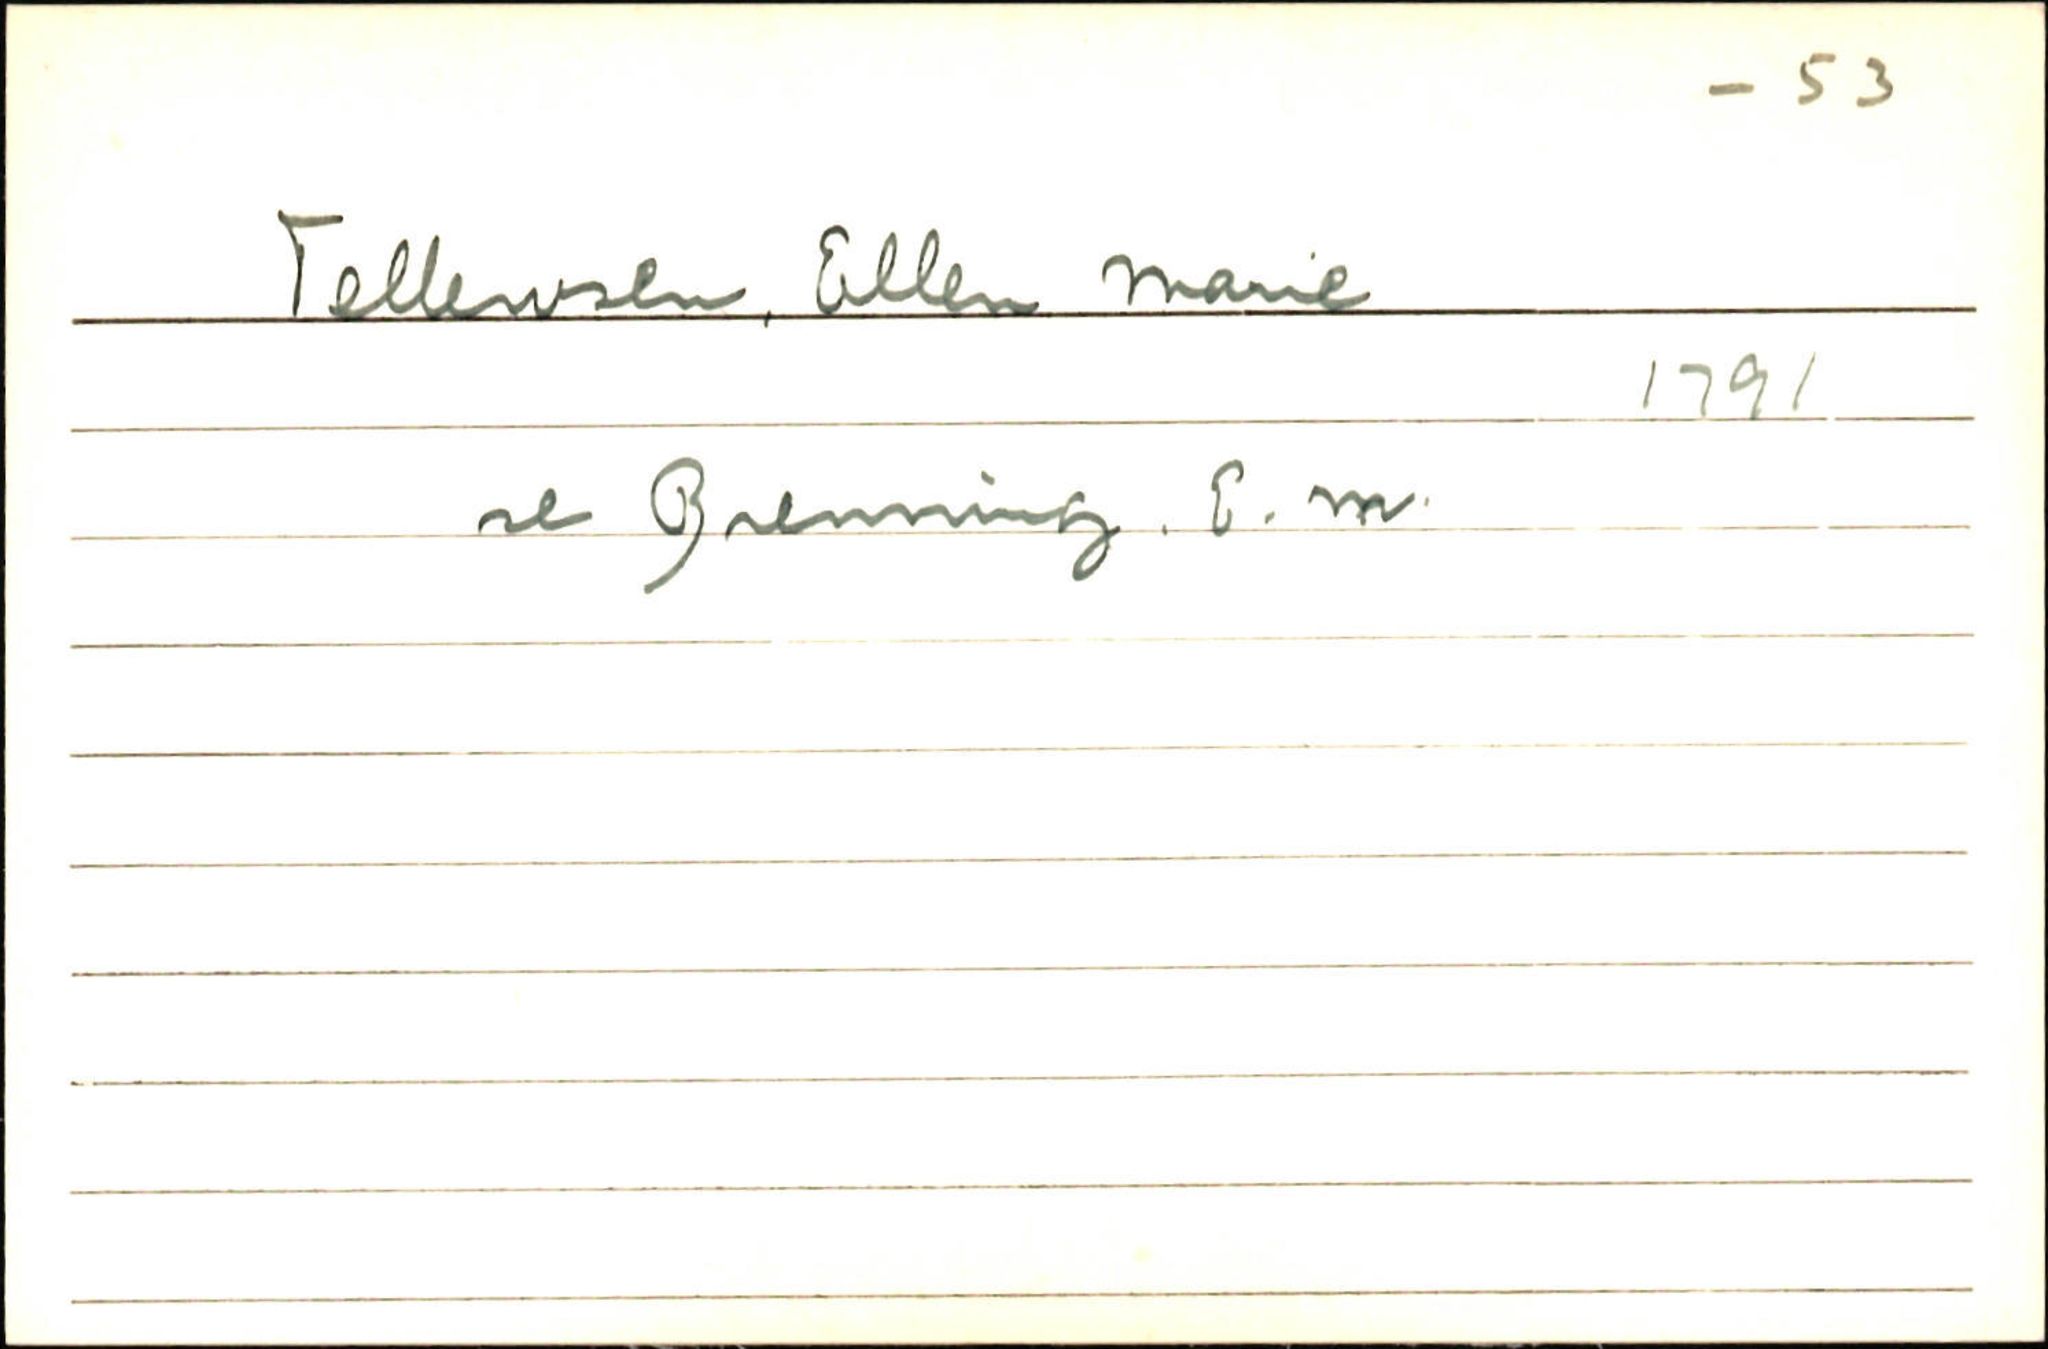 - 53
Tellewsen, Ellen Marie
1791
se Brenning, E. M.